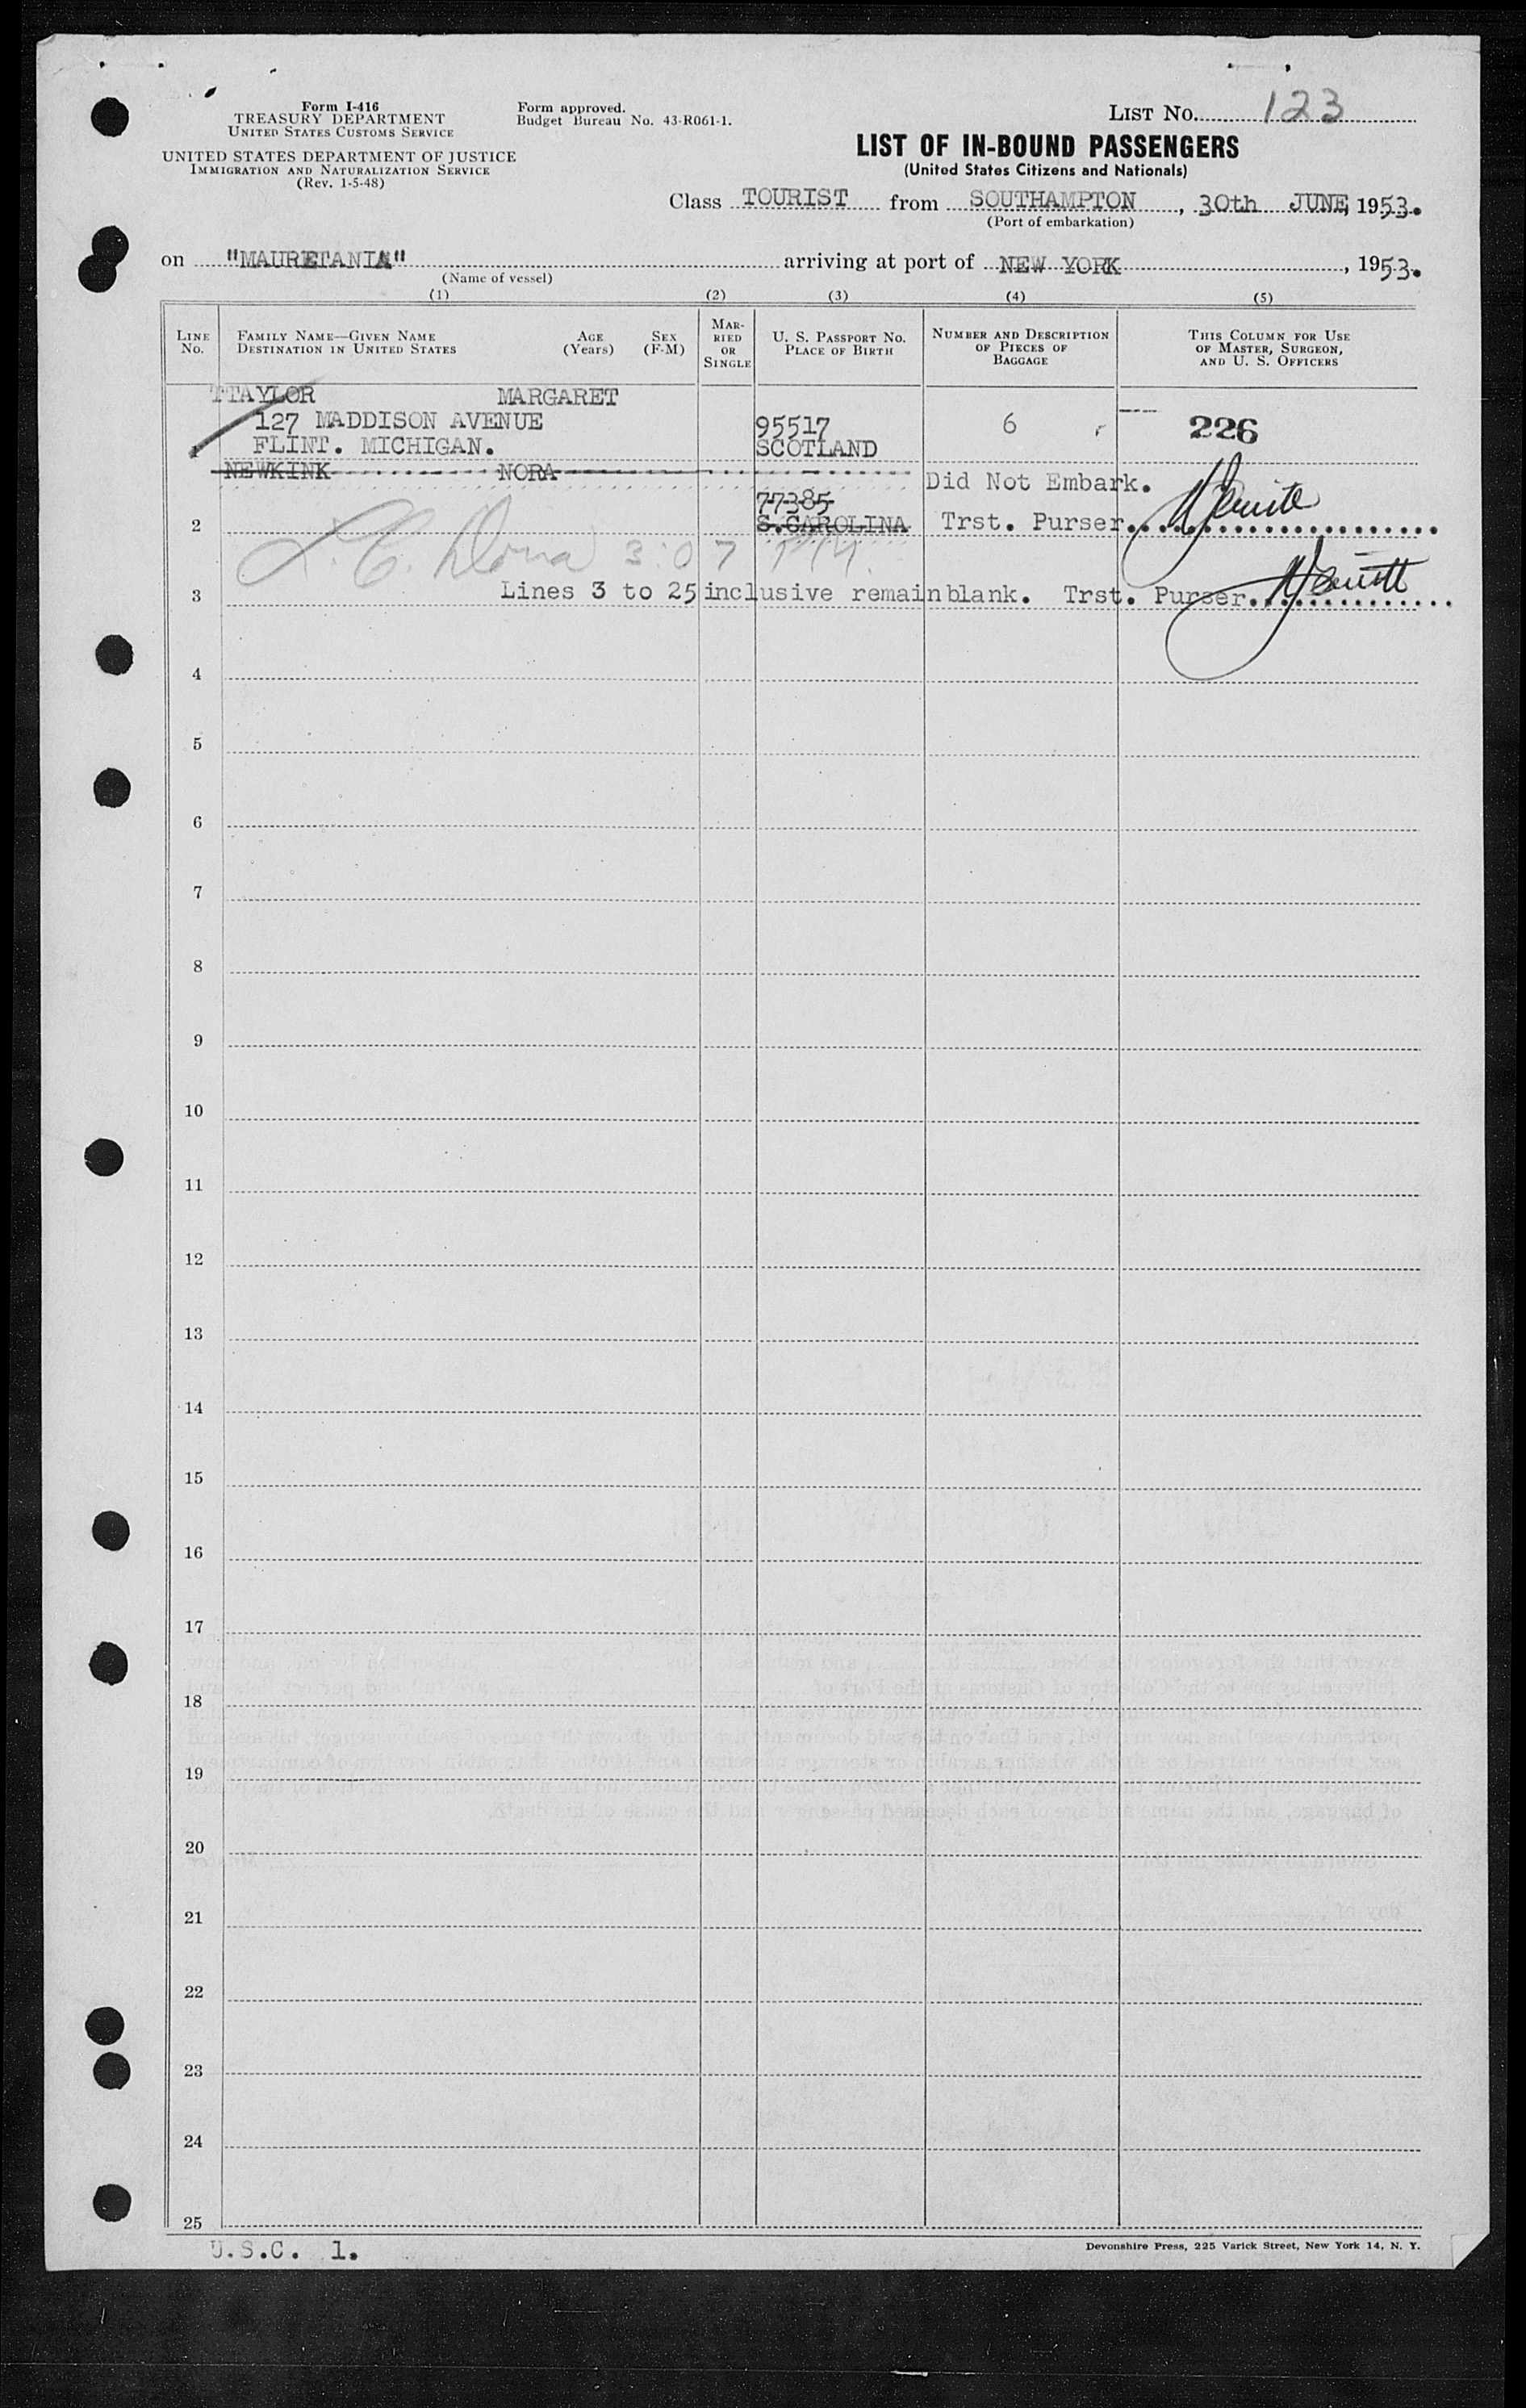 Form I-416
TREASURY DEPARTMENT
UNITED STATES CUSTOMS SERVICE
UNITED STATES DEPARTMENT OF JUSTICE
IMMIGRATION AND NATURALIZATION SERVICE
(Rev. 1-5-48)
Form approved.
Budget Bureau No. 43-R061-1.
LIST NO. 123
LIST OF IN-BOUND PASSENGERS
(United States Citizens and Nationals)
Class TOURIST from SOUTHAMPTON, 30th JUNE, 1953.
(Port of embarkation)
on "MAURETANIA" arriving at port of NEW YORK, 1953.
(Name of vessel)
(1) (2) (3) (4) (5)
LINE NO.
FAMILY NAME—GIVEN NAME
DESTINATION IN UNITED STATES
AGE (Years)
SEX (F-M)
MARRIED OR SINGLE
U. S. PASSPORT NO.
PLACE OF BIRTH
NUMBER AND DESCRIPTION OF PIECES OF BAGGAGE
THIS COLUMN FOR USE OF MASTER, SURGEON, AND U. S. OFFICERS
TTAYLOR MARGARET
127 MADDISON AVENUE 95517 6 226
1 FLINT. MICHIGAN. SCOTLAND
NEWKINK NORA
Did Not Embark.
77385
2 S.CAROLINA Trst. Purser
3:07 PM.
3 Lines 3 to 25 inclusive remain blank. Trst. Purser
4
5
6
7
8
9
10
11
12
13
14
15
16
17
18
19
20
21
22
23
24
25
U.S.C. 1.
Devonshire Press, 225 Varick Street, New York 14, N. Y.